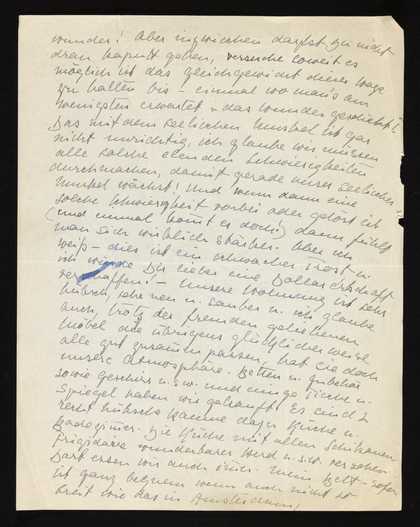 wunder! Aber inzwischen darfst Du nicht
dran kaputt gehen, versuche soweit es
möglich ist das Gleichgewicht dieser Wage
zu halten bis – einmal wo man's am
wenigsten erwartet – das Wunder geschieht!
Das mit dem seelischen Muskel ist gar
nicht unrichtig, ich glaube wir müssen
alle solche elenden Schwierigkeiten
durchmachen, damit gerade unser seelischer
Muskel wächst! Und wenn dann eine
solche Schwierigkeit vorbei oder gelöst ist
(und einmal kommt es doch) dann fühlt
man sich wirklich stärker. Aber ich
weiß – dies ist ein schwacher Trost u.
ich würde Dir lieber eine Dollarerbschaft
verschaffen! – Unsere Wohnung ist sehr
hübsch, sehr neu u. sauber u. ich glaube
auch, trotz der fremden geliehenen
Möbel die übrigens glücklicherweise
alle gut zusammen passen, hat sie doch
unsere Atmosphäre. Betten u. Zubehör
sowie Geschirr u.s.w. und einige Tische u.
Spiegel haben wir gekauft. Es sind 2
recht hübsche Räume dazu Küche u.
Badezimmer. Die Küche mit allen Schikanen,
Frigidaire wunderbarer Herd u.s.w. versehen.
Dort essen wir auch immer. Mein Bett-Sofa
ist ganz bequem wenn auch nicht so
breit wie das in Amsterdam,